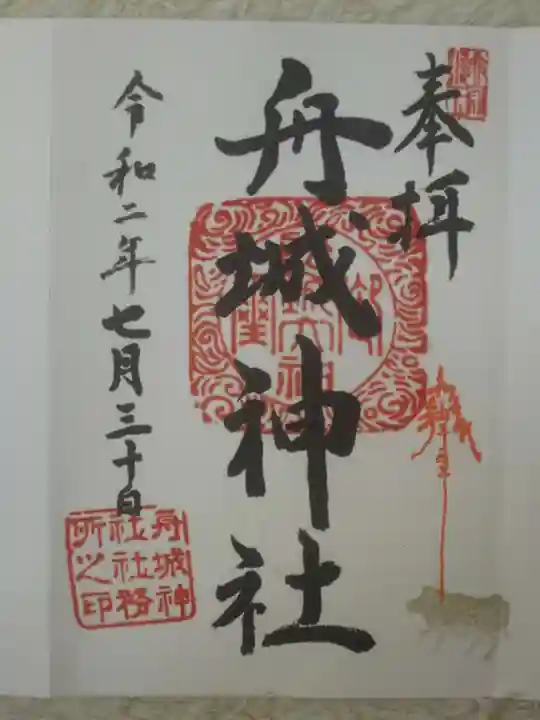 奉拝
舟城神社
令和二年七月三十日
舟城神
社社務
所之印